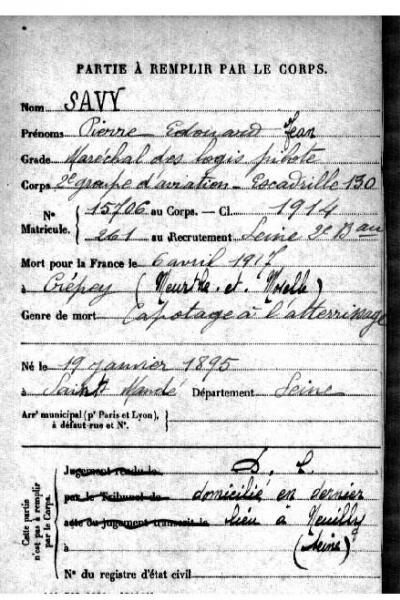 PARTIE À REMPLIR PAR LE CORPS.
Nom SAVY
Prénoms Pierre Edouard Jean
Grade Maréchal des logis pilote
Corps 2e groupe d'aviation - Escadrille 130
N° Matricule. { 15706 au Corps. — Cl. 1914
261 au Recrutement Seine 2e Bau
Mort pour la France le 6 avril 1917
à Crépey (Meurthe et Moselle)
Genre de mort Capotage à l'atterrissage
Né le 19 janvier 1895
à Saint Mandé Département Seine
Arrt municipal (pr Paris et Lyon), à défaut rue et N°. }
Cette partie n'est pas à remplir par le Corps.
Jugement rendu le D. C
par le Tribunal de domicilié en dernier
acte ou jugement transcrit le lieu à Neuilly
à (Seine)
N° du registre d'état civil